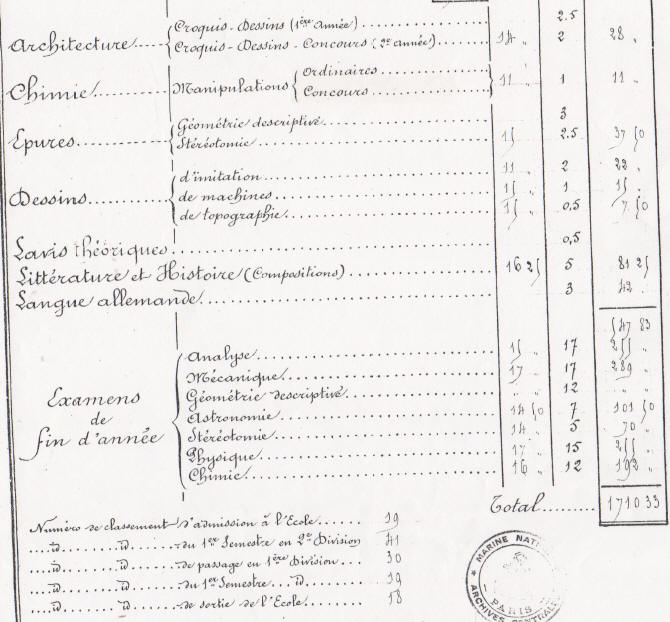 Croquis-Dessins (1ère année) 2.5
Architecture Croquis-Dessins-Concours (2e année) 14 " 2 28 "
Ordinaires
Chimie Manipulations 11 " 1 11 "
Concours
Géométrie descriptive 3
Epures Stéréotomie 15 2.5 37 50
d'imitation 11 " 2 22 "
Dessins de machines 15 " 1 15 "
de topographie 15 " 0,5 7 50
Lavis théoriques 0,5
Littérature et Histoire (Compositions) 16 25 5 81 25
Langue allemande 3 42
547 83
Analyse 15 " 17 255 "
Mécanique 17 " 17 289 "
Géométrie descriptive " " 12 " "
Examens de fin d'année Astronomie 14 50 7 101 50
Stéréotomie 14 " 5 70 "
Physique 17 " 15 255 "
Chimie 16 " 12 192 "
Total 1710 33
Numéro de classement d'admission à l'Ecole 19
id id du 1er Semestre en 2e Division 41
id id de passage en 1ère Division 30
id id du 1er Semestre id
id id de sortie de l'Ecole
MARINE NAT
ARCHIVES CENTRALE
PARIS